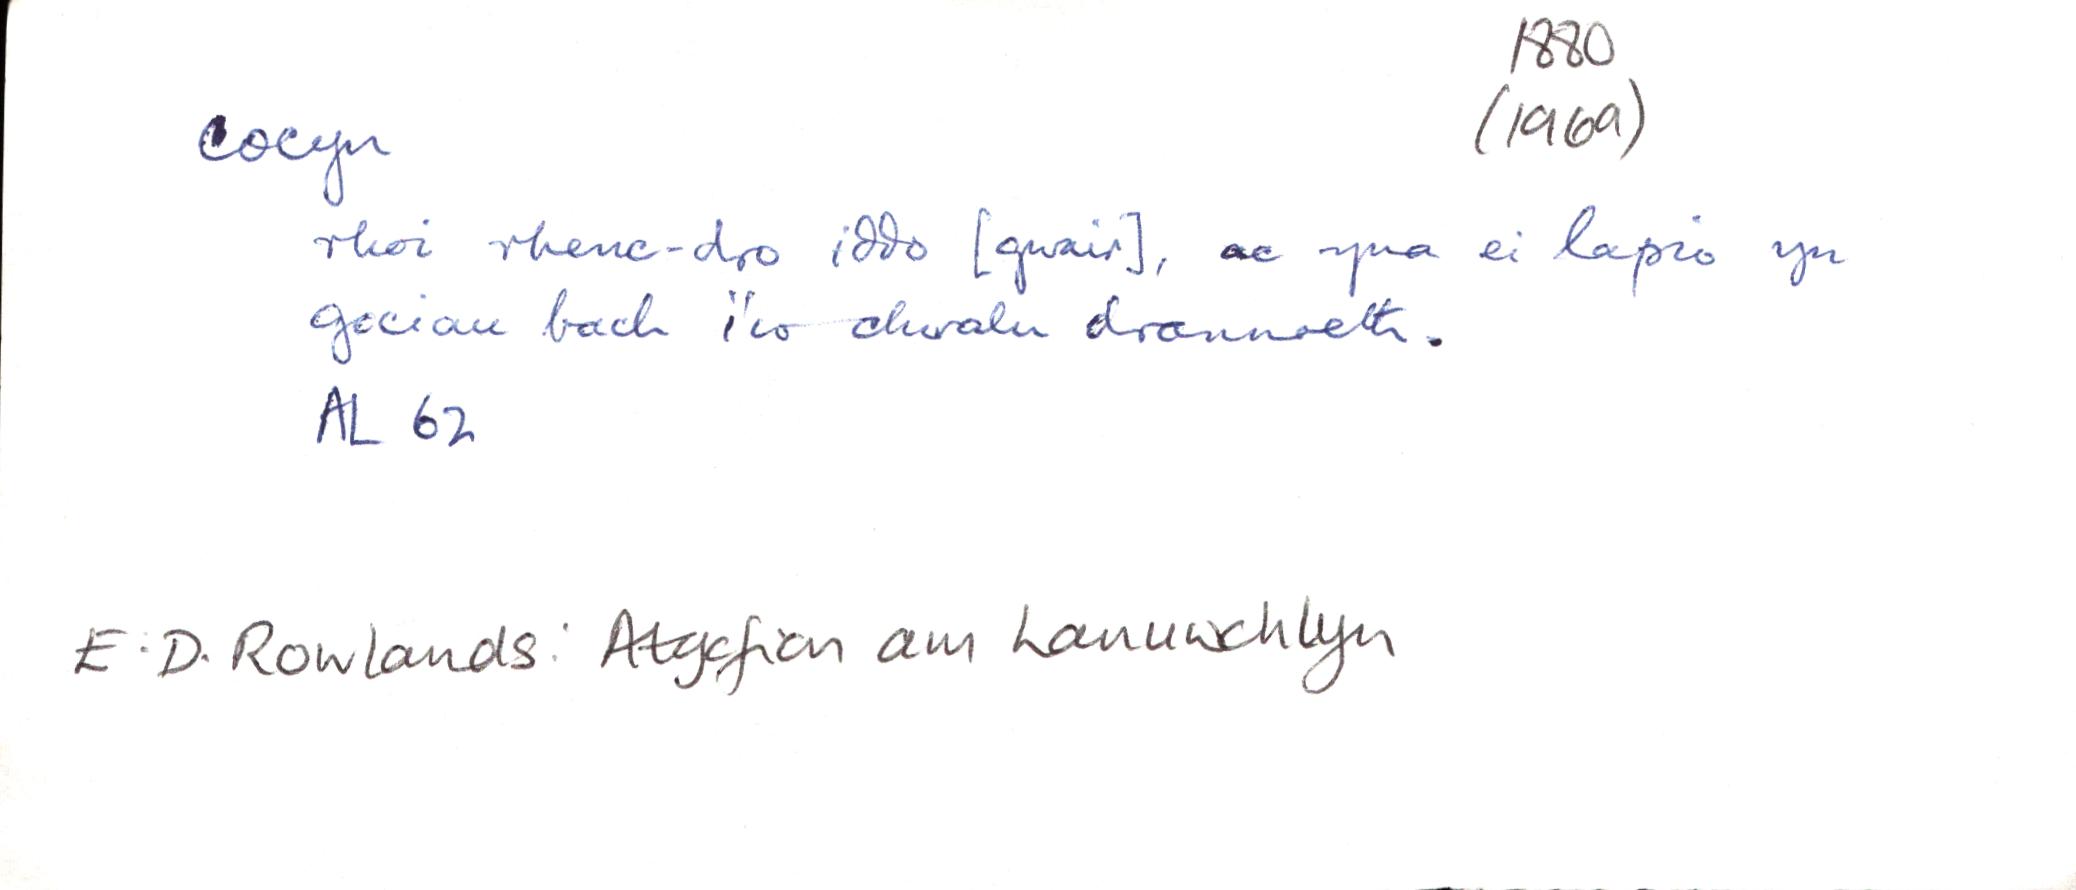 1880
(1969)
cocyn
rhoi rhenc-dro iddo [gwair], ac yna ei lapio yn
gociau bach i'w chwalu drannoeth.
AL 62
E. D. Rowlands: Atgofion am Lanuwchllyn